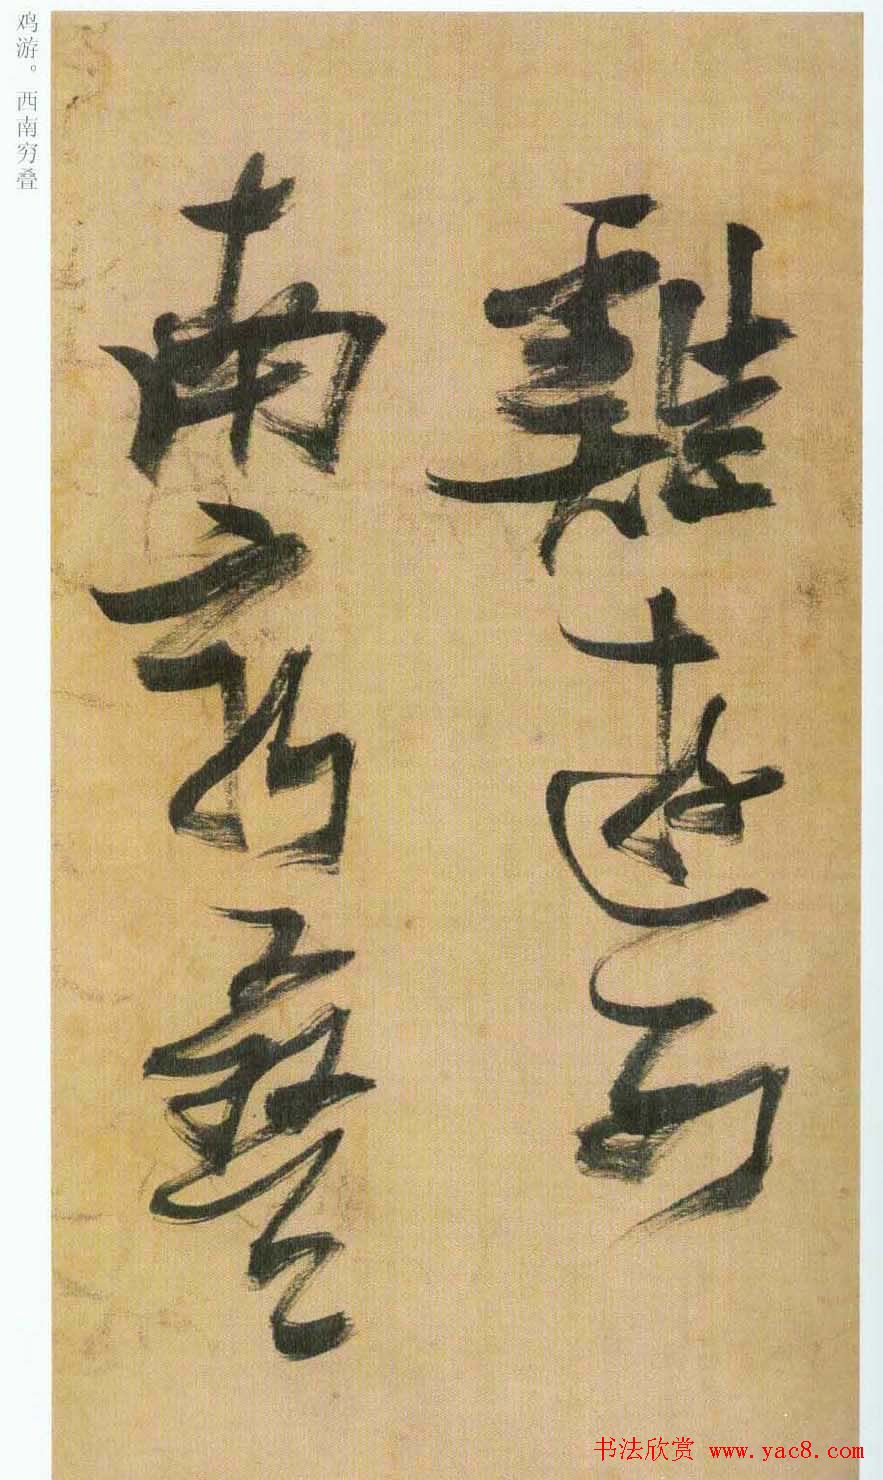 雞遊西
南窮疊
鸡游。西南穷叠
书法欣赏 www.yac8.com